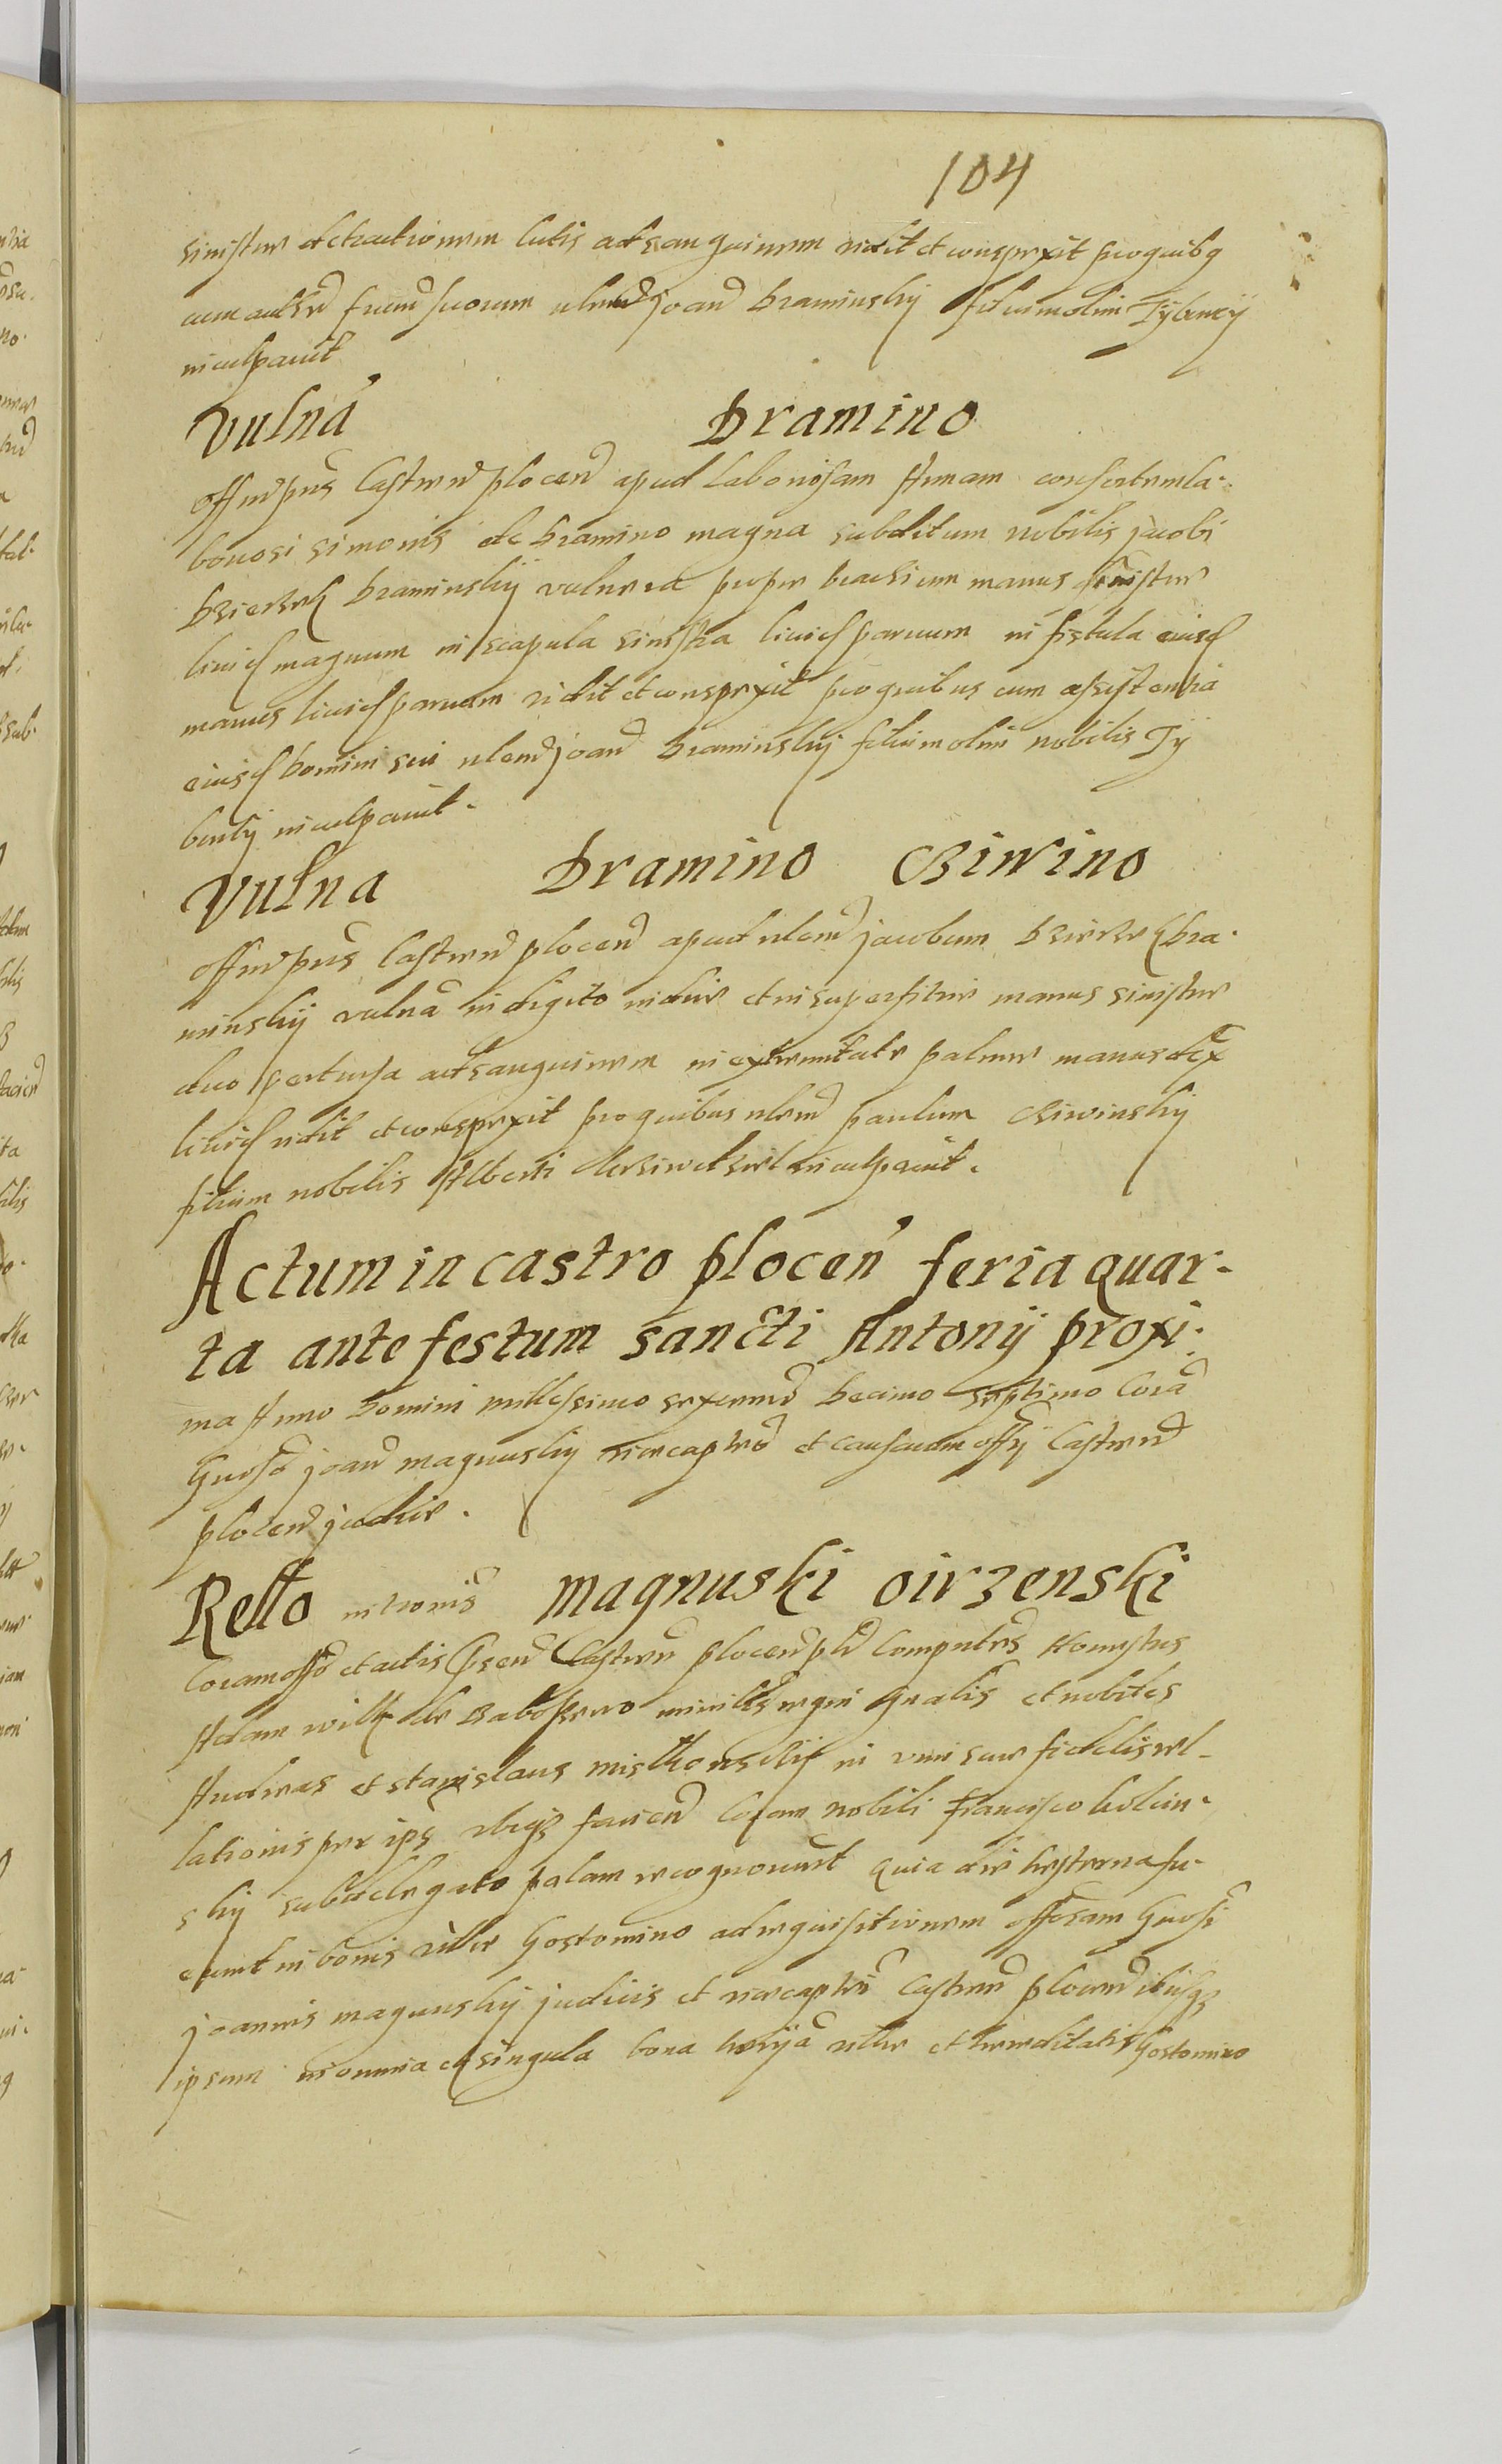 104
sinistrae detractionem cutis ad sanguinem vidit et conspexit pro quibq
cum amicor suorum nlem Joan Draminsky filium olim Tyburcij
inculpavit
Vulna Dramino
Offm pns Castren plocen apud laboriosam Annam consortem la-
boriosi simonis de Dramino magna subditum nobilis jacobi
Draminskij vulnera prope brachium manus sinistrae
livid magnum in scapula sinistra livid parvum in fistula eiusd
manus livid parvum vidit et conspexit pro quibus cum assistentia
eiusd domini sui nlem Joan Draminskij filium olim nobilis Ty
burtij inculpavit.
Vulna Dramino Cziwino
Offm pns Castren plocen apud nlem jacobum Dra-
minskij vulna in digito indice et in superficie manus sinistrae
duo pertusa ad sanguinem in extremitate palmae manus dex
livid vidit et conspexit pro quibus nlem paulum Cziwinsky
filium nobilis Alberti inculpavit.
Actum in castro plocen feria quar-
ta ante festum sancti Antonij proxi-
ma Anno Domini millessimo sexcenmo Decimo septimo Cora
Gnoso joan magnusky vicecaptneo et causarum offij Castren
plocen judice.
Rello intronis Magnuski oirzenski
Coram offo et actis pnsen Castren plocen pr Computres Honestus
Adam wilk de minilis regni gnalis et nobiles
Andreas et stanislaus in vim suae fidelis rel-
lationis per ips facien Coram nobili francisco
skij subdelegato palam recognoverut quia die hesterna fu-
erunt in bonis villae Gostomino ad requisitionem offosam Gnosi
joannis magnuskij judicis et vicecaptnei Castren plocen
ipsum in omnia et singula bona villae et haereditatis Gostomino